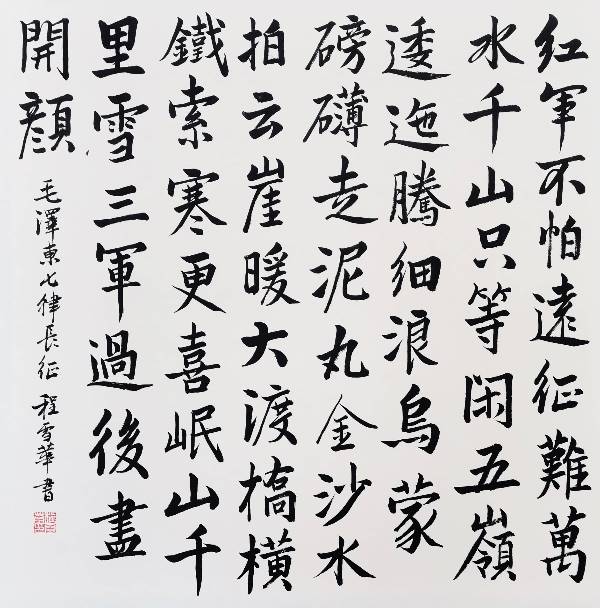 红軍不怕遠征難萬
水千山只等闲五嶺
逶迤騰細浪烏蒙
磅礴走泥丸金沙水
拍云崖暖大渡橋橫
鐵索寒更喜岷山千
里雪三軍過後盡
開顔
毛澤東七律長征 程雪華書